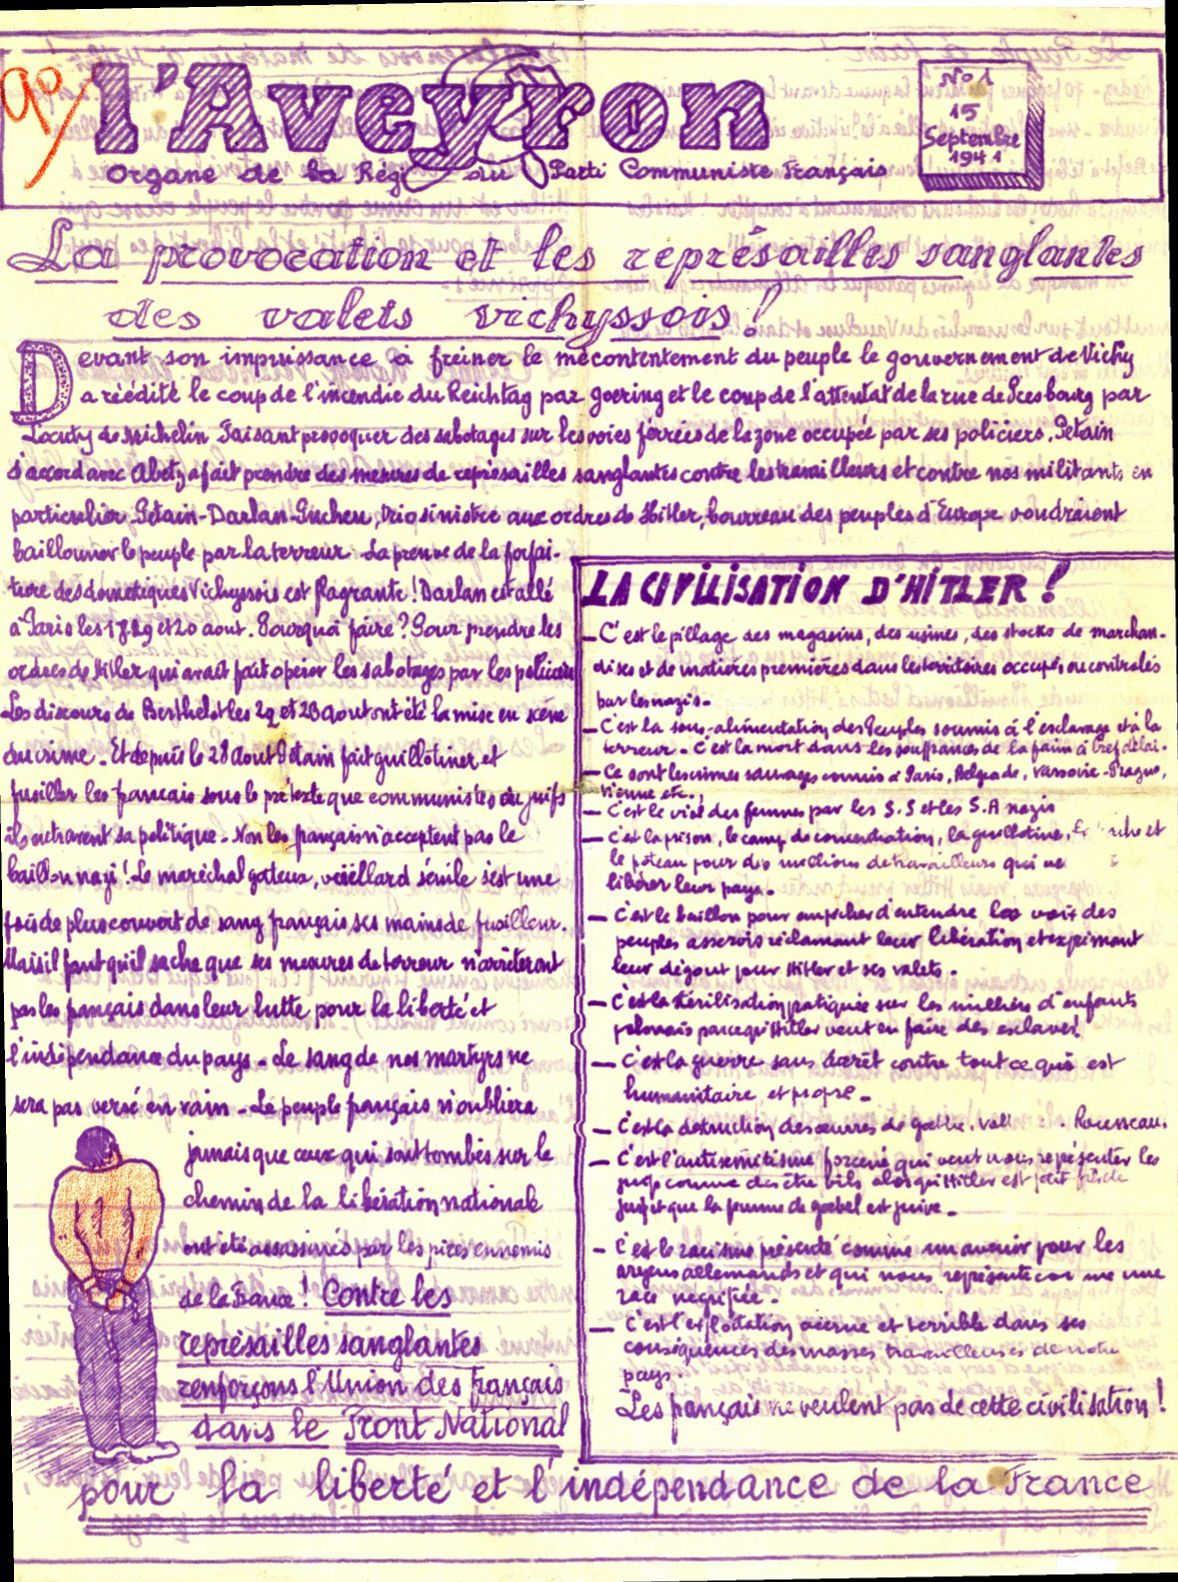 90
l'Aveyron
Organe de la Régi du Parti Communiste Français
No 1
15
Septembre
1941
La provocation et les représailles sanglantes
des valets vichyssois!
Devant son impuissance à freiner le mécontentement du peuple le gouvernement de Vichy
a réédité le coup de l'incendie du Reichtag par Goering et le coup de l'attentat de la rue de Presbourg par
Locuty de Michelin. Faisant provoquer des sabotages sur les voies ferrées de la zone occupée par ses policiers, Petain
d'accord avec Abetz a fait prendre des mesures de représailles sanglantes contre les travailleurs et contre nos militants en
particulier. Petain-Darlan-Pucheu, trio sinistre aux ordres de Hitler, bourreau des peuples d'Europe voudraient
baillonner le peuple par la terreur. La preuve de la forfai-
ture des domestiques Vichyssois est flagrante! Darlan est allé
à Paris les 18 et 20 aout. Pourquoi faire? Pour prendre les
ordres de Hitler qui avait fait opérer les sabotages par les policiers
Les discours de Berthelot les 22 et 23 aout ont été la mise en scène
du crime. Et depuis le 28 aout Petain fait guillotiner et
fusiller les français sous le prétexte que communistes ou juifs
ils entravent sa politique. Non les français n'acceptent pas le
baillon nazi! Le maréchal gateux, vieillard sénile s'est une
fois de plus couvert de sang français ses mains de fusilleur.
Mais il faut qu'il sache que ses mesures de terreur n'arrêteront
pas les français dans leur lutte pour la liberté et
l'indépendance du pays. Le sang de nos martyrs ne
sera pas versé en vain. Le peuple français n'oubliera
jamais que ceux qui sont tombés sur le
chemin de la libération nationale
ont été assassinés par les pires ennemis
de la France! Contre les
représailles sanglantes
renforçons l'Union des Français
dans le Front National
LA CIVILISATION D'HITLER!
- C'est le pillage des magasins, des usines, des stocks de marchan-
dises et de matières premières dans les territoires occupés ou controlés
par les nazis.
- C'est la sous-alimentation des Peuples soumis à l'esclavage et à la
terreur. C'est la mort dans les souffrances de la faim à bref délai.
- Ce sont les crimes sauvages commis à Paris, Belgrade, Varsovie. Prague,
Vienne etc.
- C'est le viol des femmes par les S.S et les S.A nazis
- C'est la prison, le camp de concentration, la guillotine, et
le poteau pour des millions de travailleurs qui
libérer leur pays.
- C'est le baillon pour empêcher d'entendre les voix des
peuples asservis réclamant leur libération et exprimant
leur dégout pour Hitler et ses valets.
- C'est la stérilisation pratiquée sur les milliers d'enfants
polonais parce qu'Hitler veut en faire des esclaves!
- C'est la guerre sans arrêt contre tout ce qui est
humanitaire et propre.
- C'est la destruction des œuvres de Goethe, Rousseau.
- C'est l'antisémitisme forcené qui veut nous représenter les
juifs comme des être vils alors qu'Hitler est petit fils de
juif et que la femme de goebel est juive.
- C'est le racisme présenté comme un avenir pour les
aryens allemands et qui nous représente comme une
race négrifiée.
- C'est l'exploitation accrue et terrible dans ses
conséquences des masses travailleuses de notre
pays.
Les français ne veulent pas de cette civilisation!
pour la liberté et l'indépendance de la France